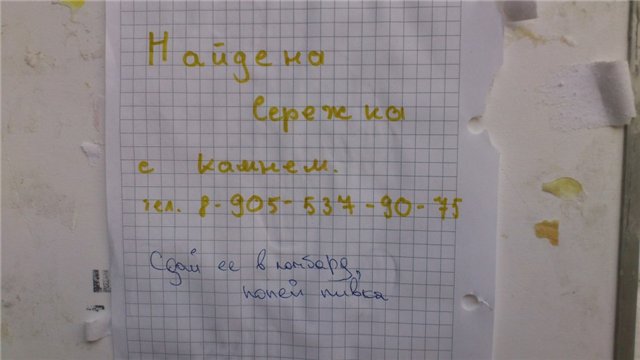 Найдена
Сережка
с камнем.
тел. 8-905-537-90-75
Сдай ее в ломбард,
попей пивка